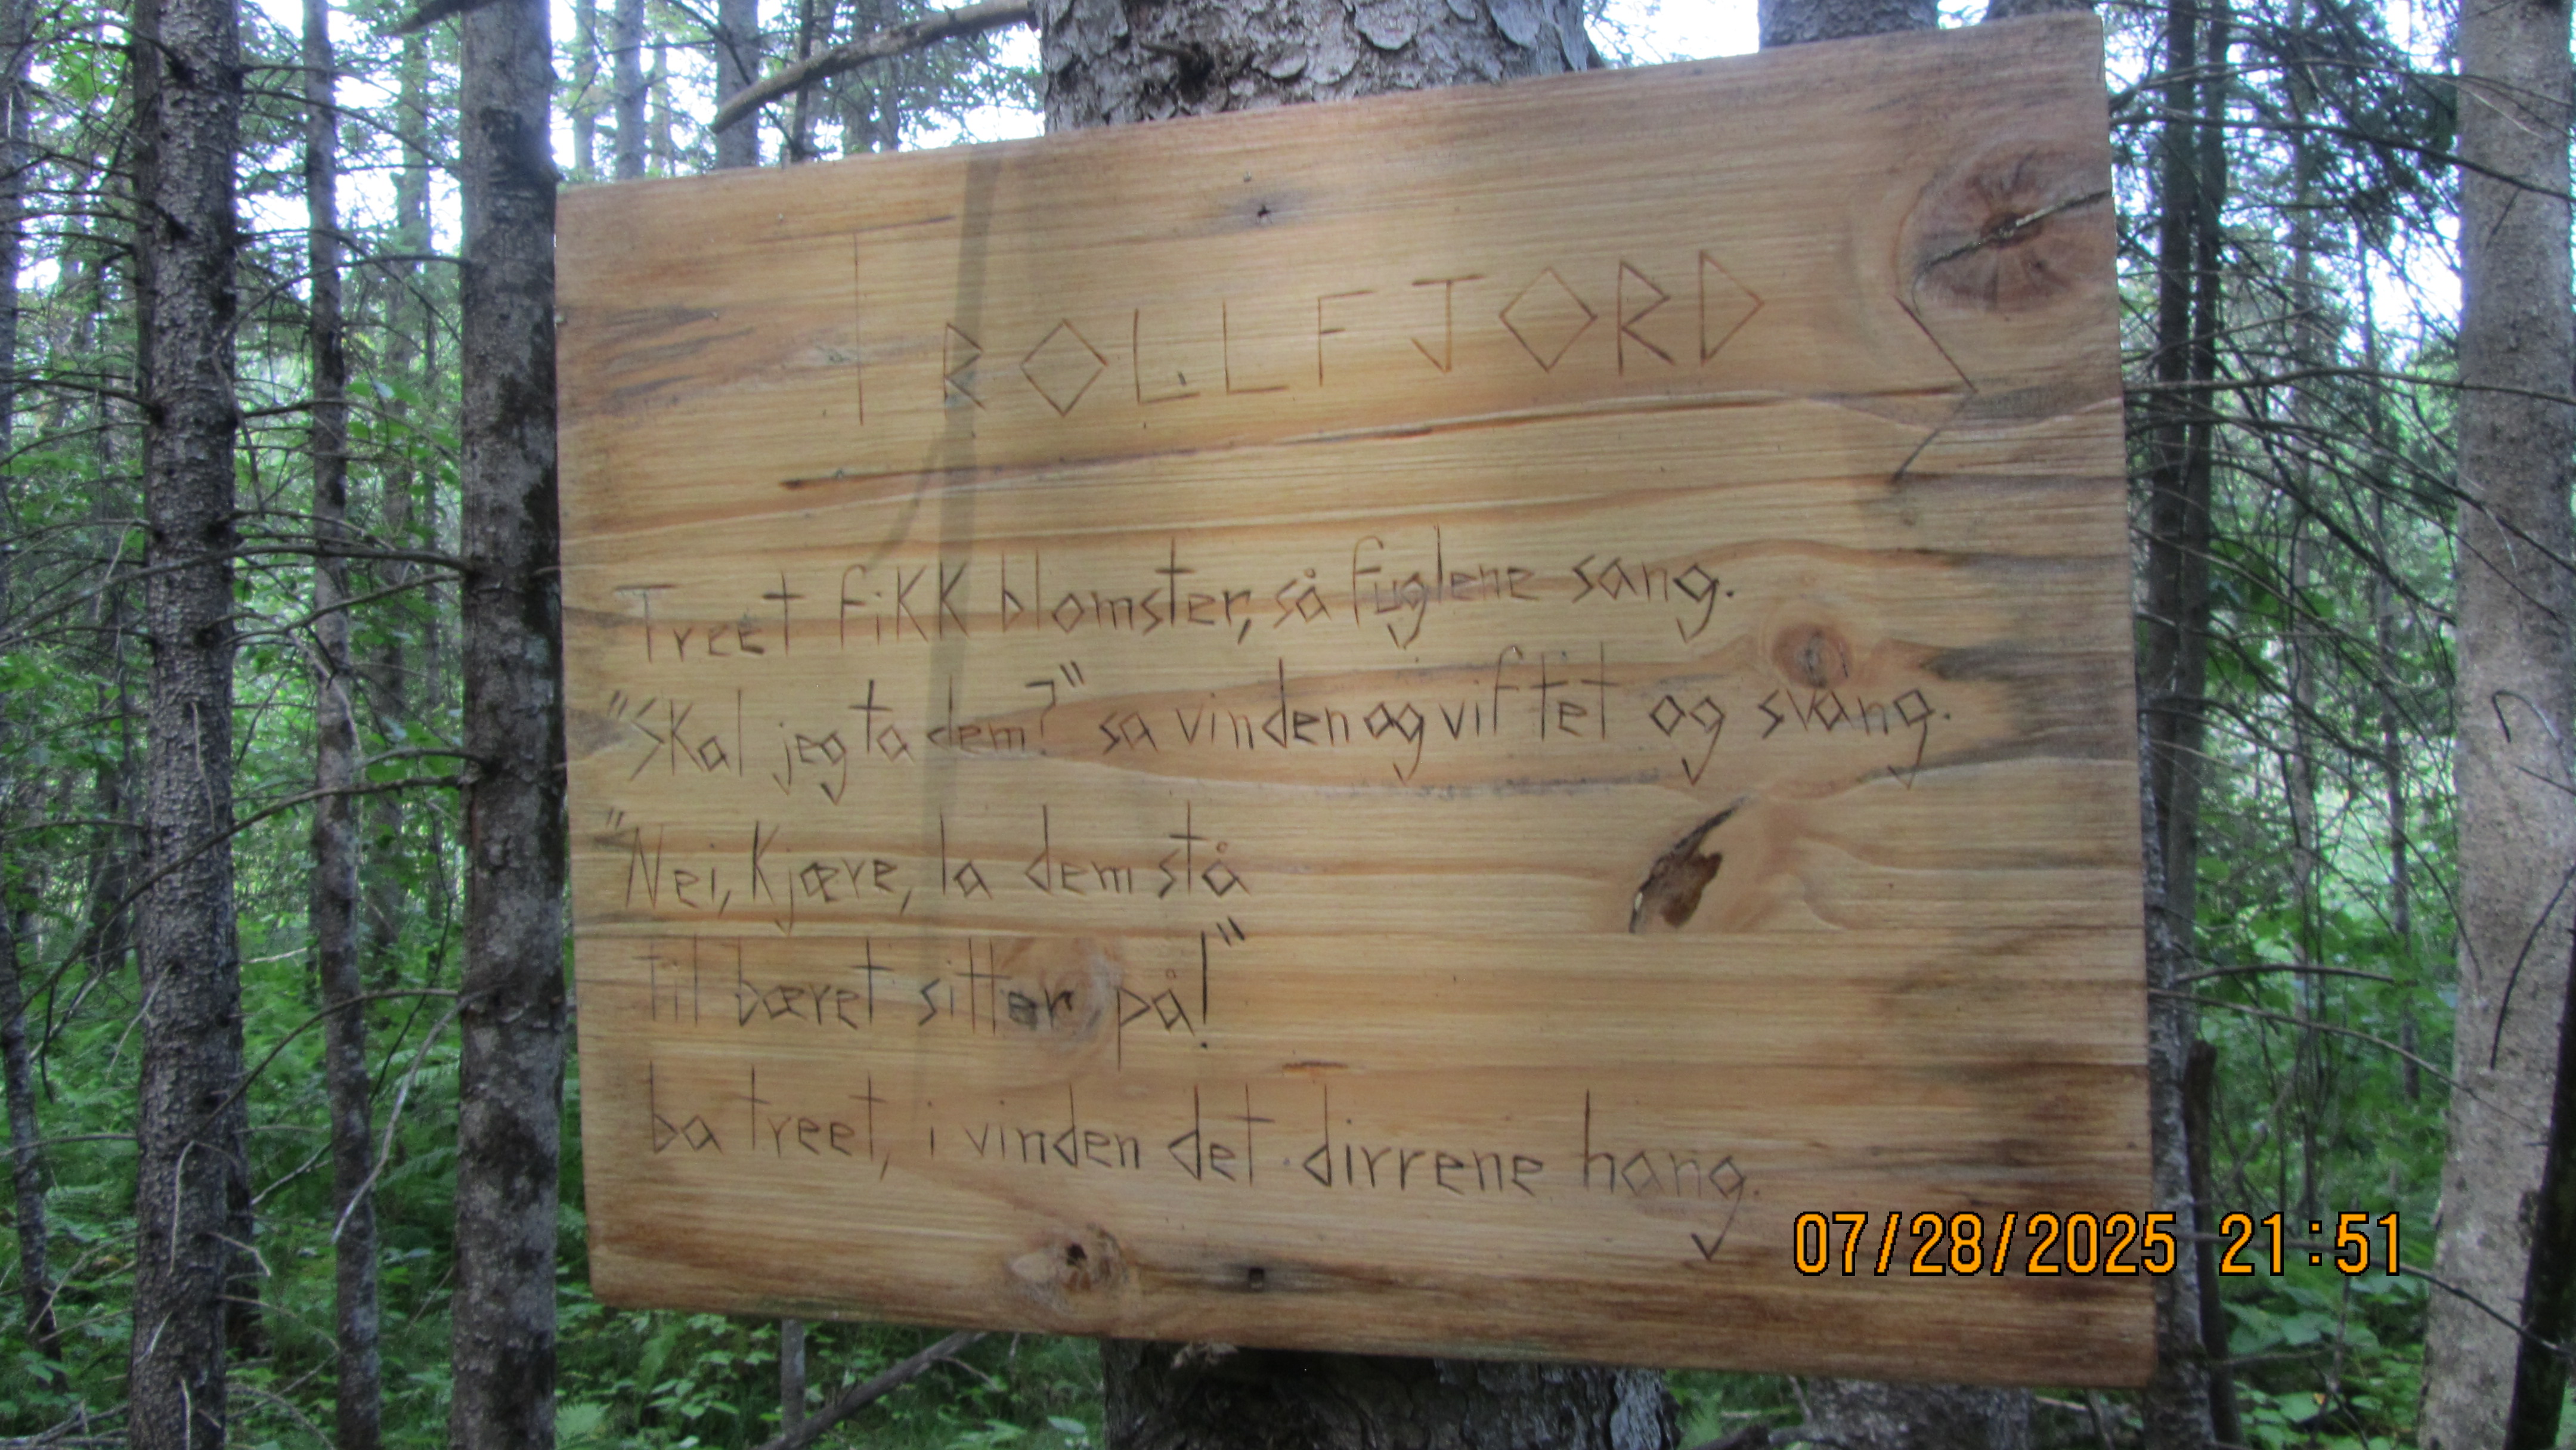 TROLLFJORD
Treet fikk blomster, så fuglene sang.
"Skal jeg ta dem?" sa vinden og viftet og svang.
"Nei, kjære, la dem stå
til bæret sitter på!"
ba treet, i vinden det dirrene hang.
07/28/2025 21:51